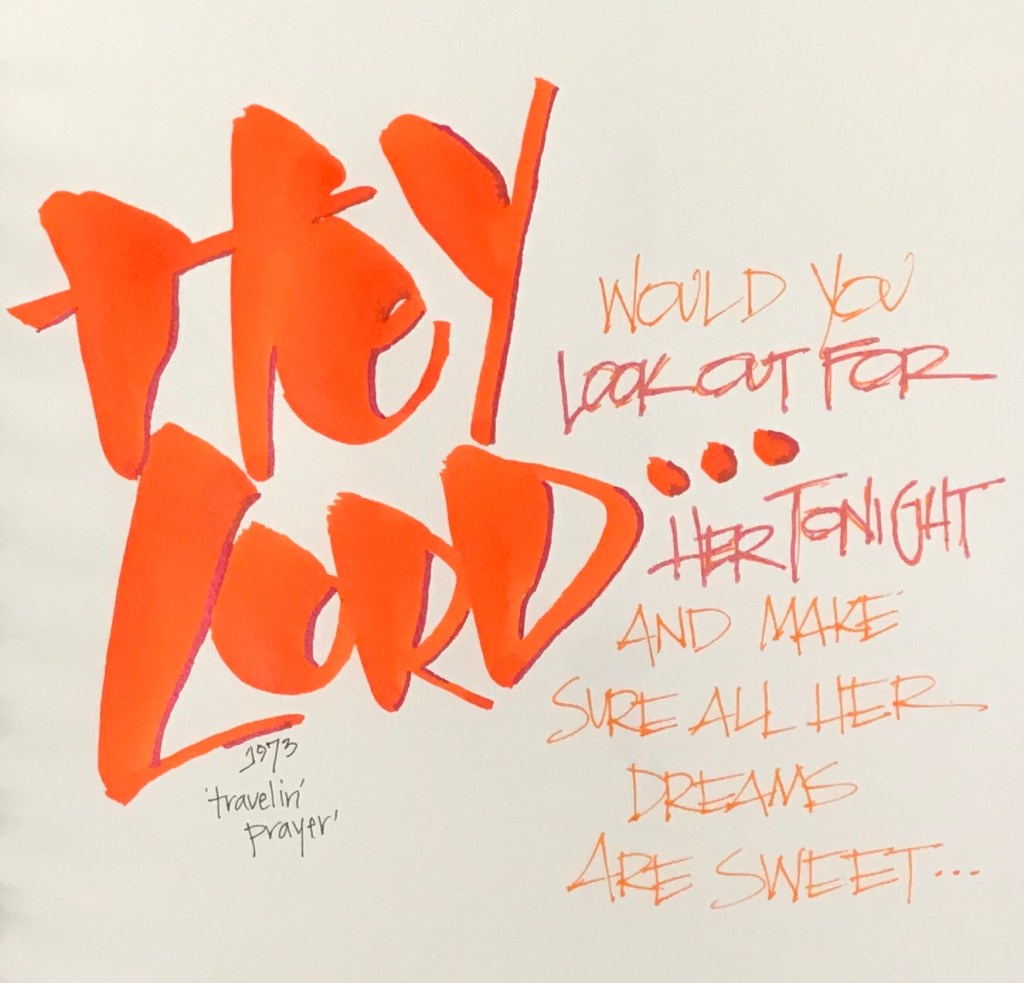 HEY
LORD
WOULD YOU
LOOK OUT FOR
...
HER TONIGHT
AND MAKE
SURE ALL HER
DREAMS
ARE SWEET...
1973
'travelin'
prayer'